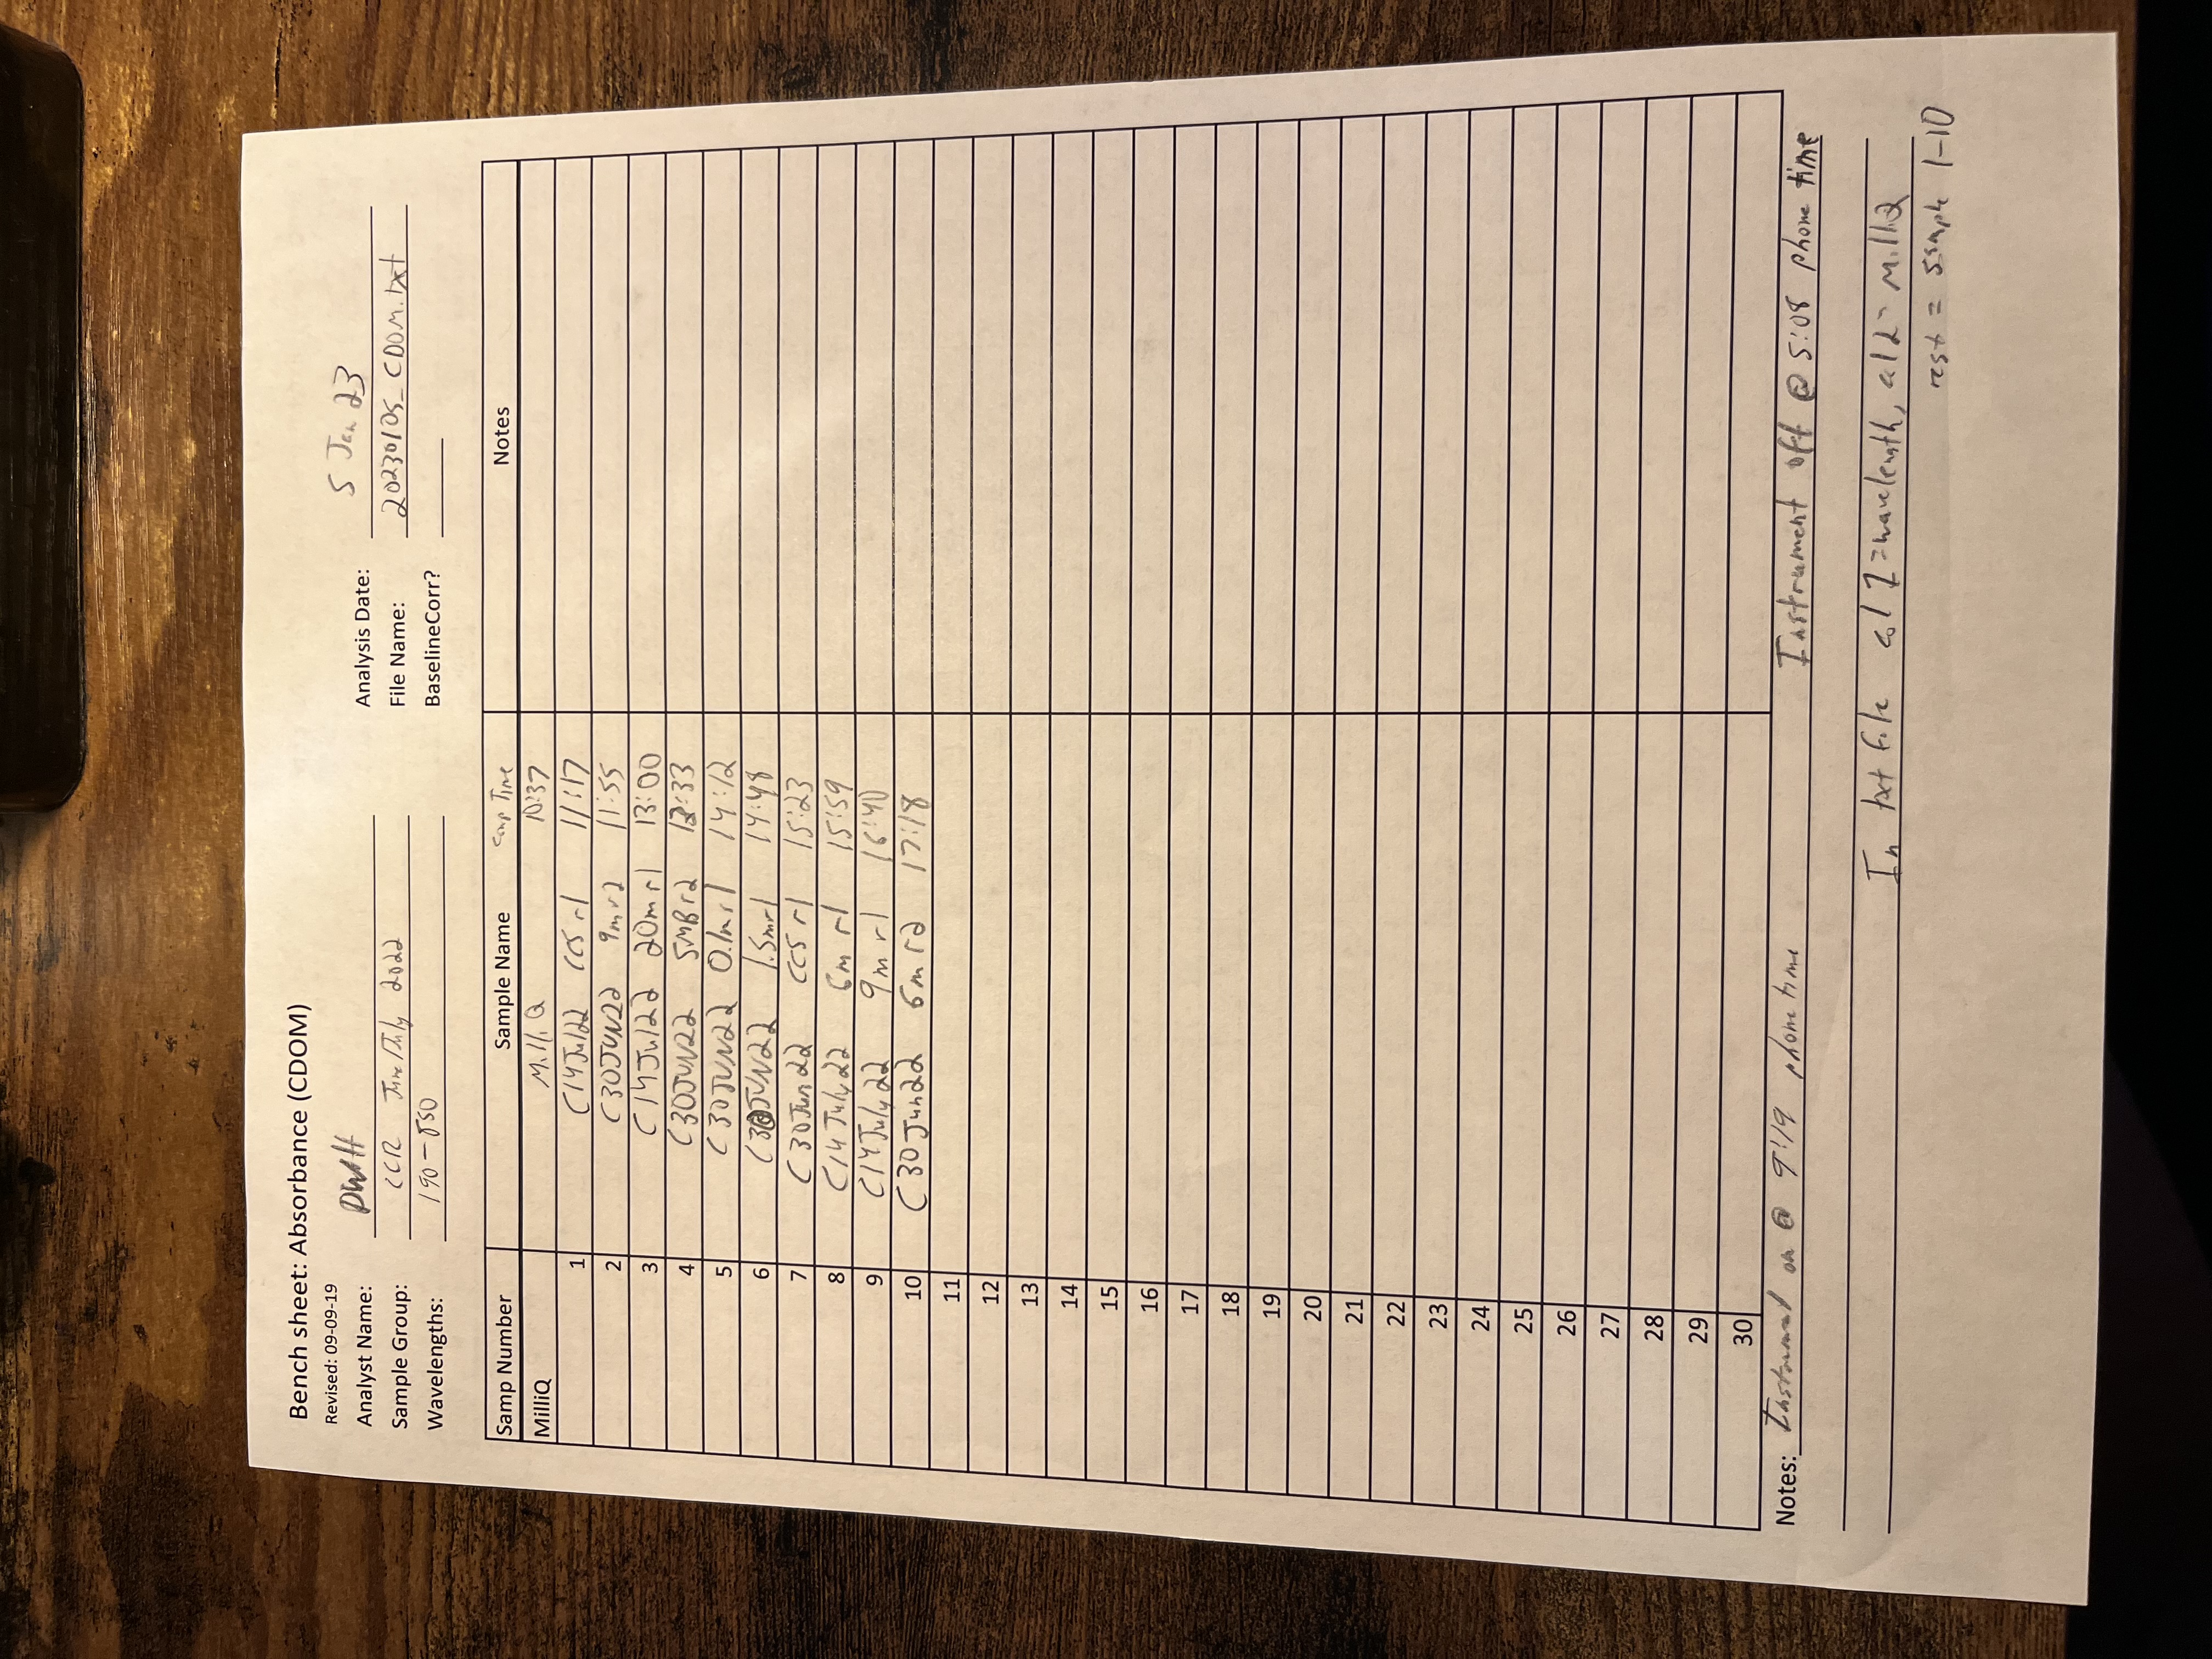 Bench sheet: Absorbance (CDOM)
Revised: 09-09-19
Analyst Name: DWH Analysis Date: 5 Jan 23
Sample Group: CCR June/July 2022 File Name: 20230105_CDOM.txt
Wavelengths: 190-850 BaselineCorr?
Samp Number Sample Name Comp Time Notes
MilliQ MilliQ 10:37
1 C14Jul22 CCS r1 11:17
2 C30JUN22 9m r2 11:55
3 C14Jul22 20m r1 13:00
4 C30JUN22 SMB r2 :33
5 C30JUN22 0.1m r1 14:12
6 C30JUN22 1.5m r1 14:48
7 C30Jun22 CCS r1 15:23
8 C14July22 6m r1 15:59
9 C14July22 9m r1 16:40
10 C30Jun22 6m r2 17:18
11
12
13
14
15
16
17
18
19
20
21
22
23
24
25
26
27
28
29
30
Notes: Instrument on @ 9:19 phone time Instrument off @ 5:08 phone time
In txt file col 1=wavelength, col2= MilliQ
rest = sample 1-10